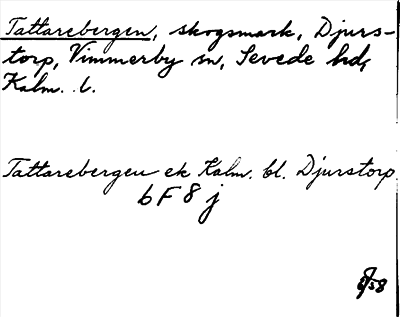 Tattarebergen, skogsmark, Djurs-
torp, Vimmerby sn, Sevede hd,
Kalm. l.
Tattarebergen ek Kalm. bl. Djurstorp
6F8j